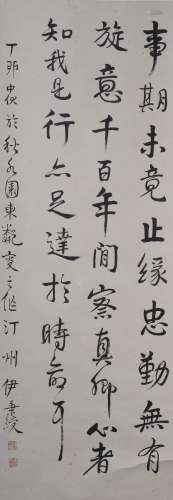 事期未竟止緣忠勤無有
旋意千百年間察真卿心者
知我是行亦足達於時命耳
丁卯中秋於秋水園東甂雯之作汀州伊秉綬